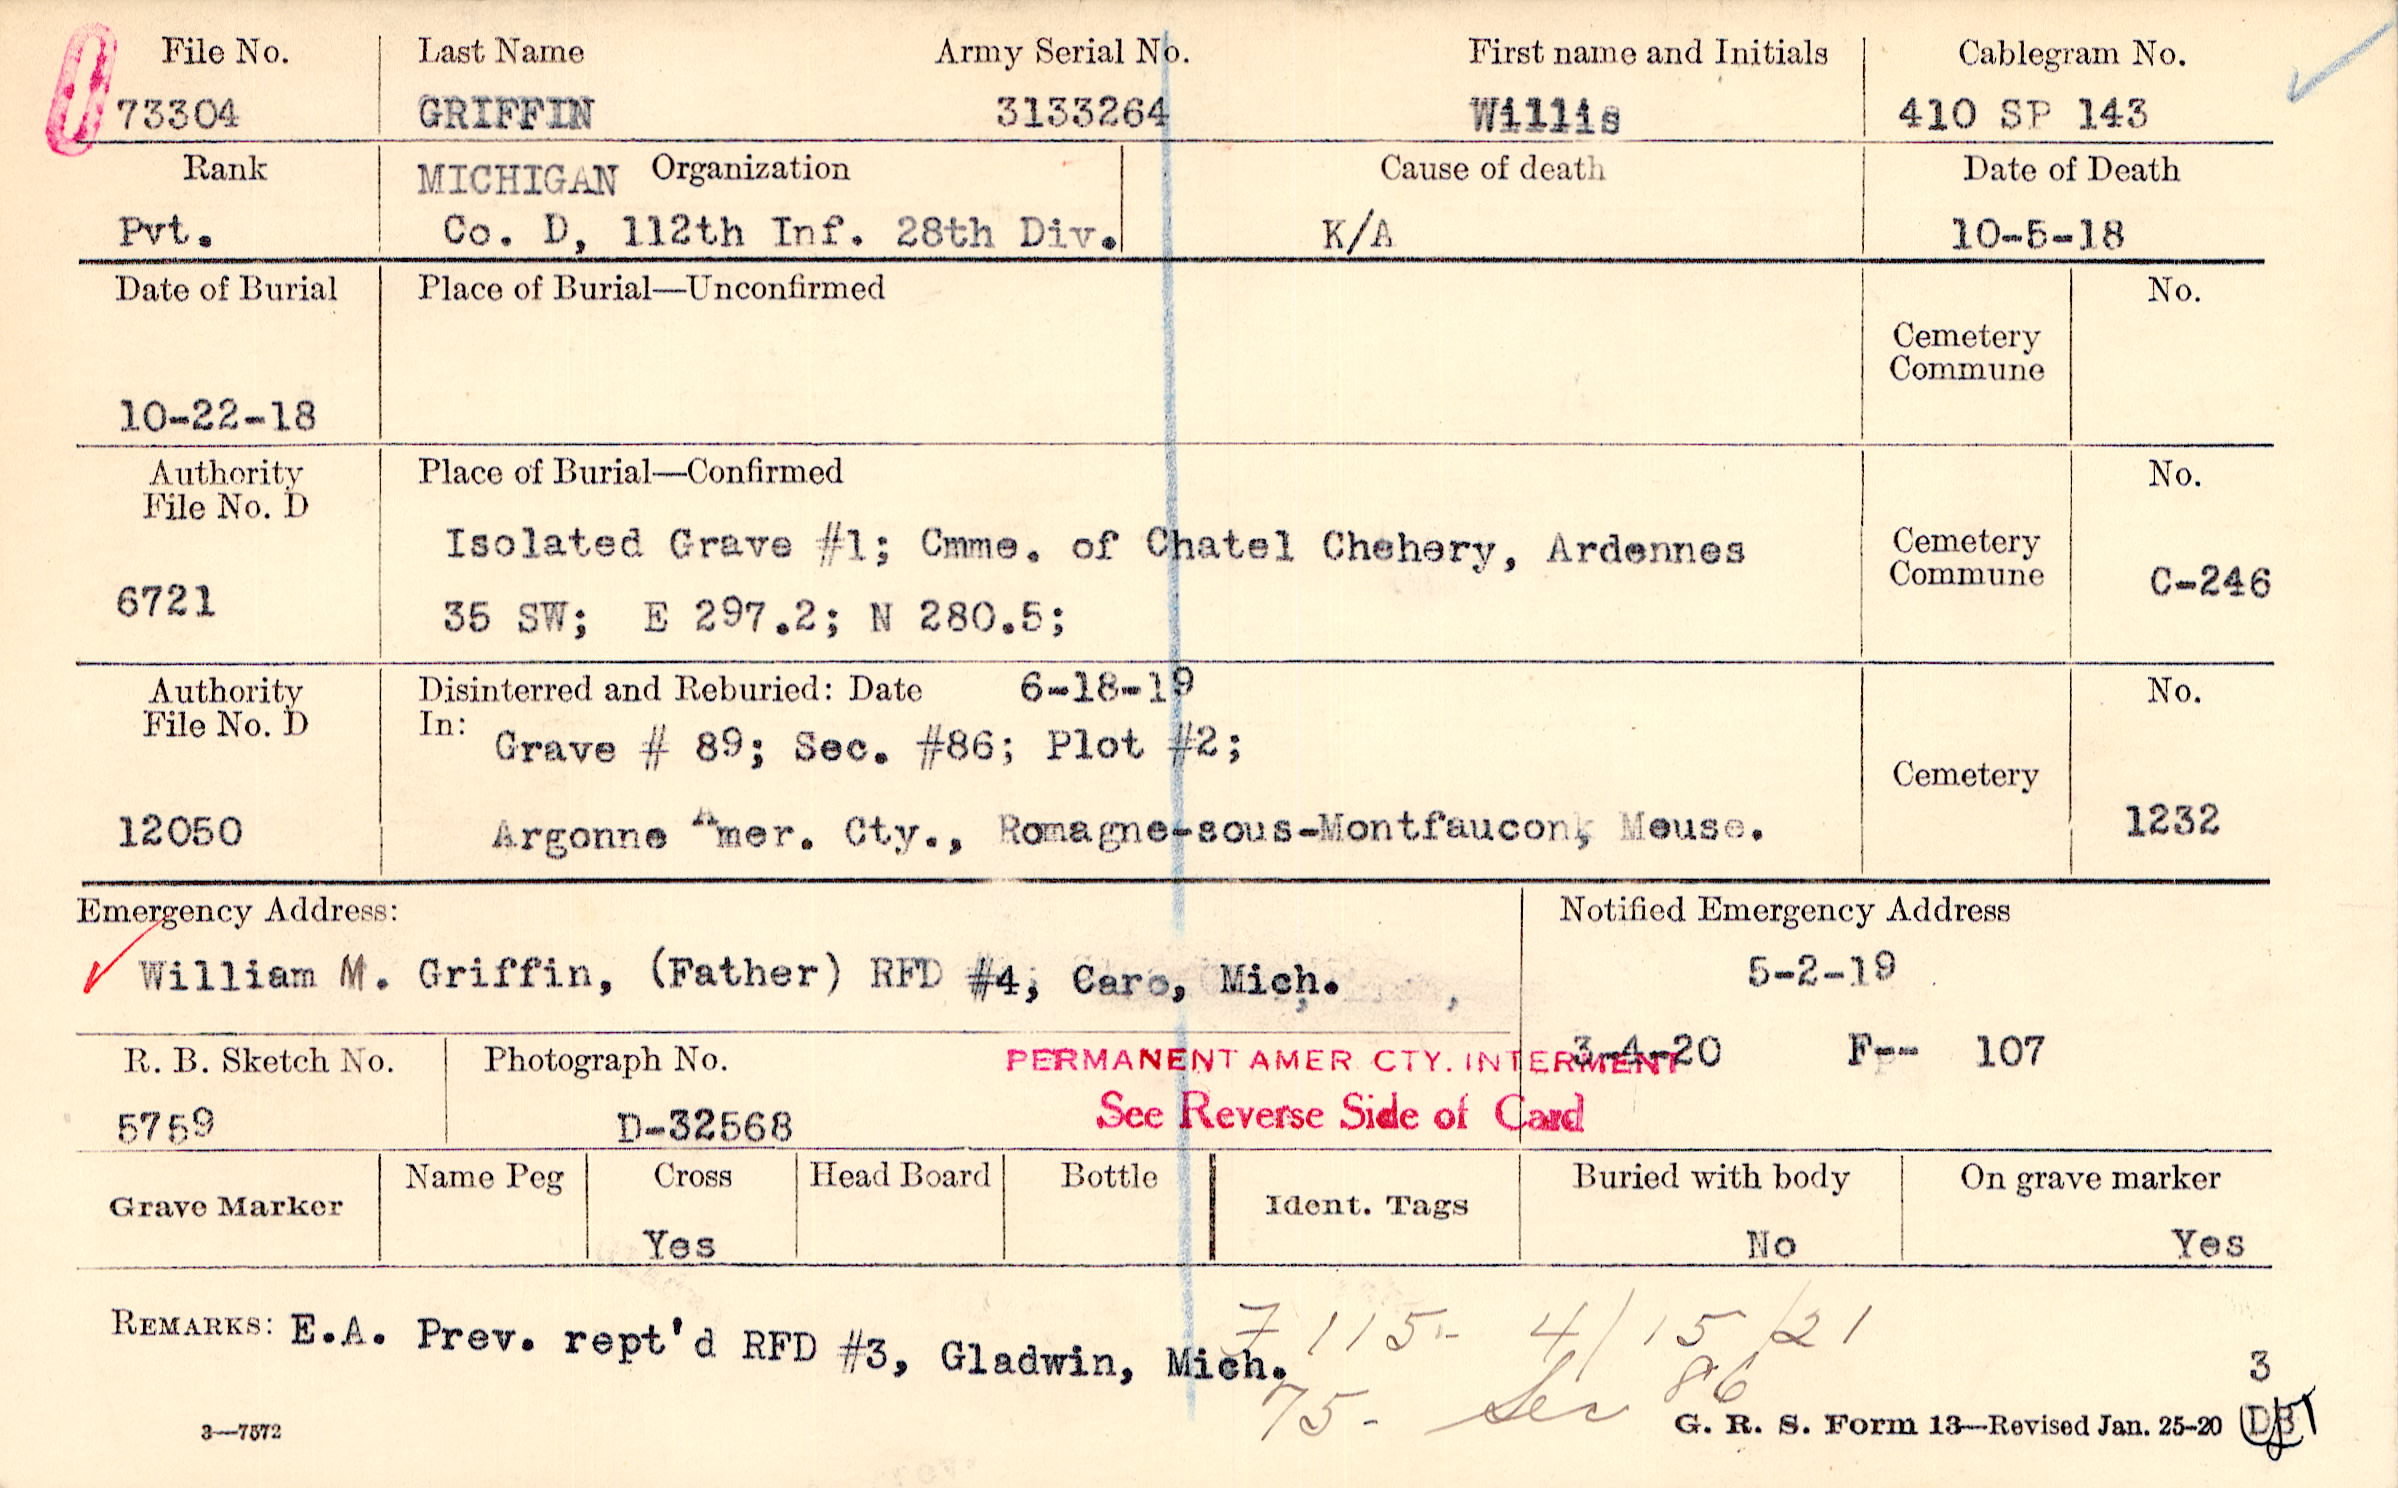 File No. Last Name Army Serial No. First name and Initials Cablegram No.
73304 GRIFFIN 3133264 Willis 410 SP 143
Rank MICHIGAN Organization Cause of death Date of Death
Pvt. Co. D, 112th Inf. 28th Div. K/A 10-5-18
Date of Burial Place of Burial—Unconfirmed No.
Cemetery
Commune
10-22-18
Authority Place of Burial—Confirmed No.
File No. D
Isolated Grave #1; Cmme. of Chatel Chehery, Ardennes Cemetery
Commune C-246
6721 35 SW; E 297.2; N 280.5;
Authority Disinterred and Reburied: Date 6-18-19 No.
File No. D In:
Grave # 89; Sec. #86; Plot #2;
Cemetery
12050 Argonne Amer. Cty., Romagne-sous-Montfaucon, Meuse. 1232
Emergency Address: Notified Emergency Address
William M. Griffin, (Father) RFD #4, Caro, Mich. 5-2-19
R. B. Sketch No. Photograph No. PERMANENT AMER CTY. INTERMENT 3-4-20 F-- 107
5759 D-32568 See Reverse Side of Card
Grave Marker Name Peg Cross Head Board Bottle Ident. Tags Buried with body On grave marker
Yes No Yes
REMARKS: E.A. Prev. rept'd RFD #3, Gladwin, Mich. 115- 4/15/21
75- Sec 86 3
3—7572 G. R. S. Form 13—Revised Jan. 25-20